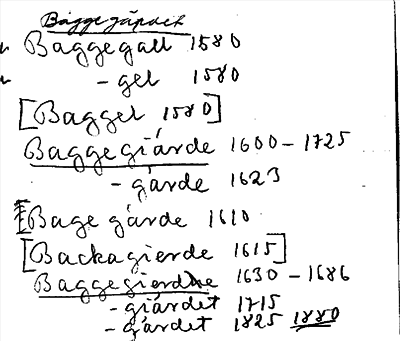 Baggegall 1580
- gel 1580
[Baggel 1580]
Baggegiärde 1600 - 1725
- gärde 1623
[Bage gärde 1610
[Backagierde 1615]
Baggegierdne 1630 - 1686
- giärdet 1715
- gärdet 1825 1880